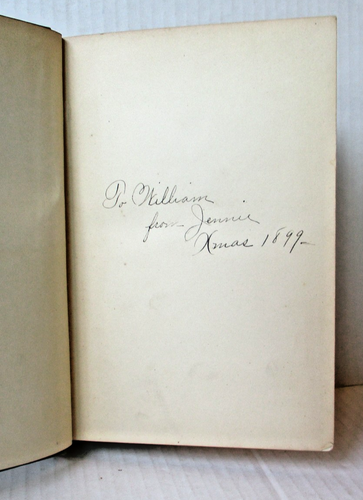 To William
from Jennie
Xmas 1899-